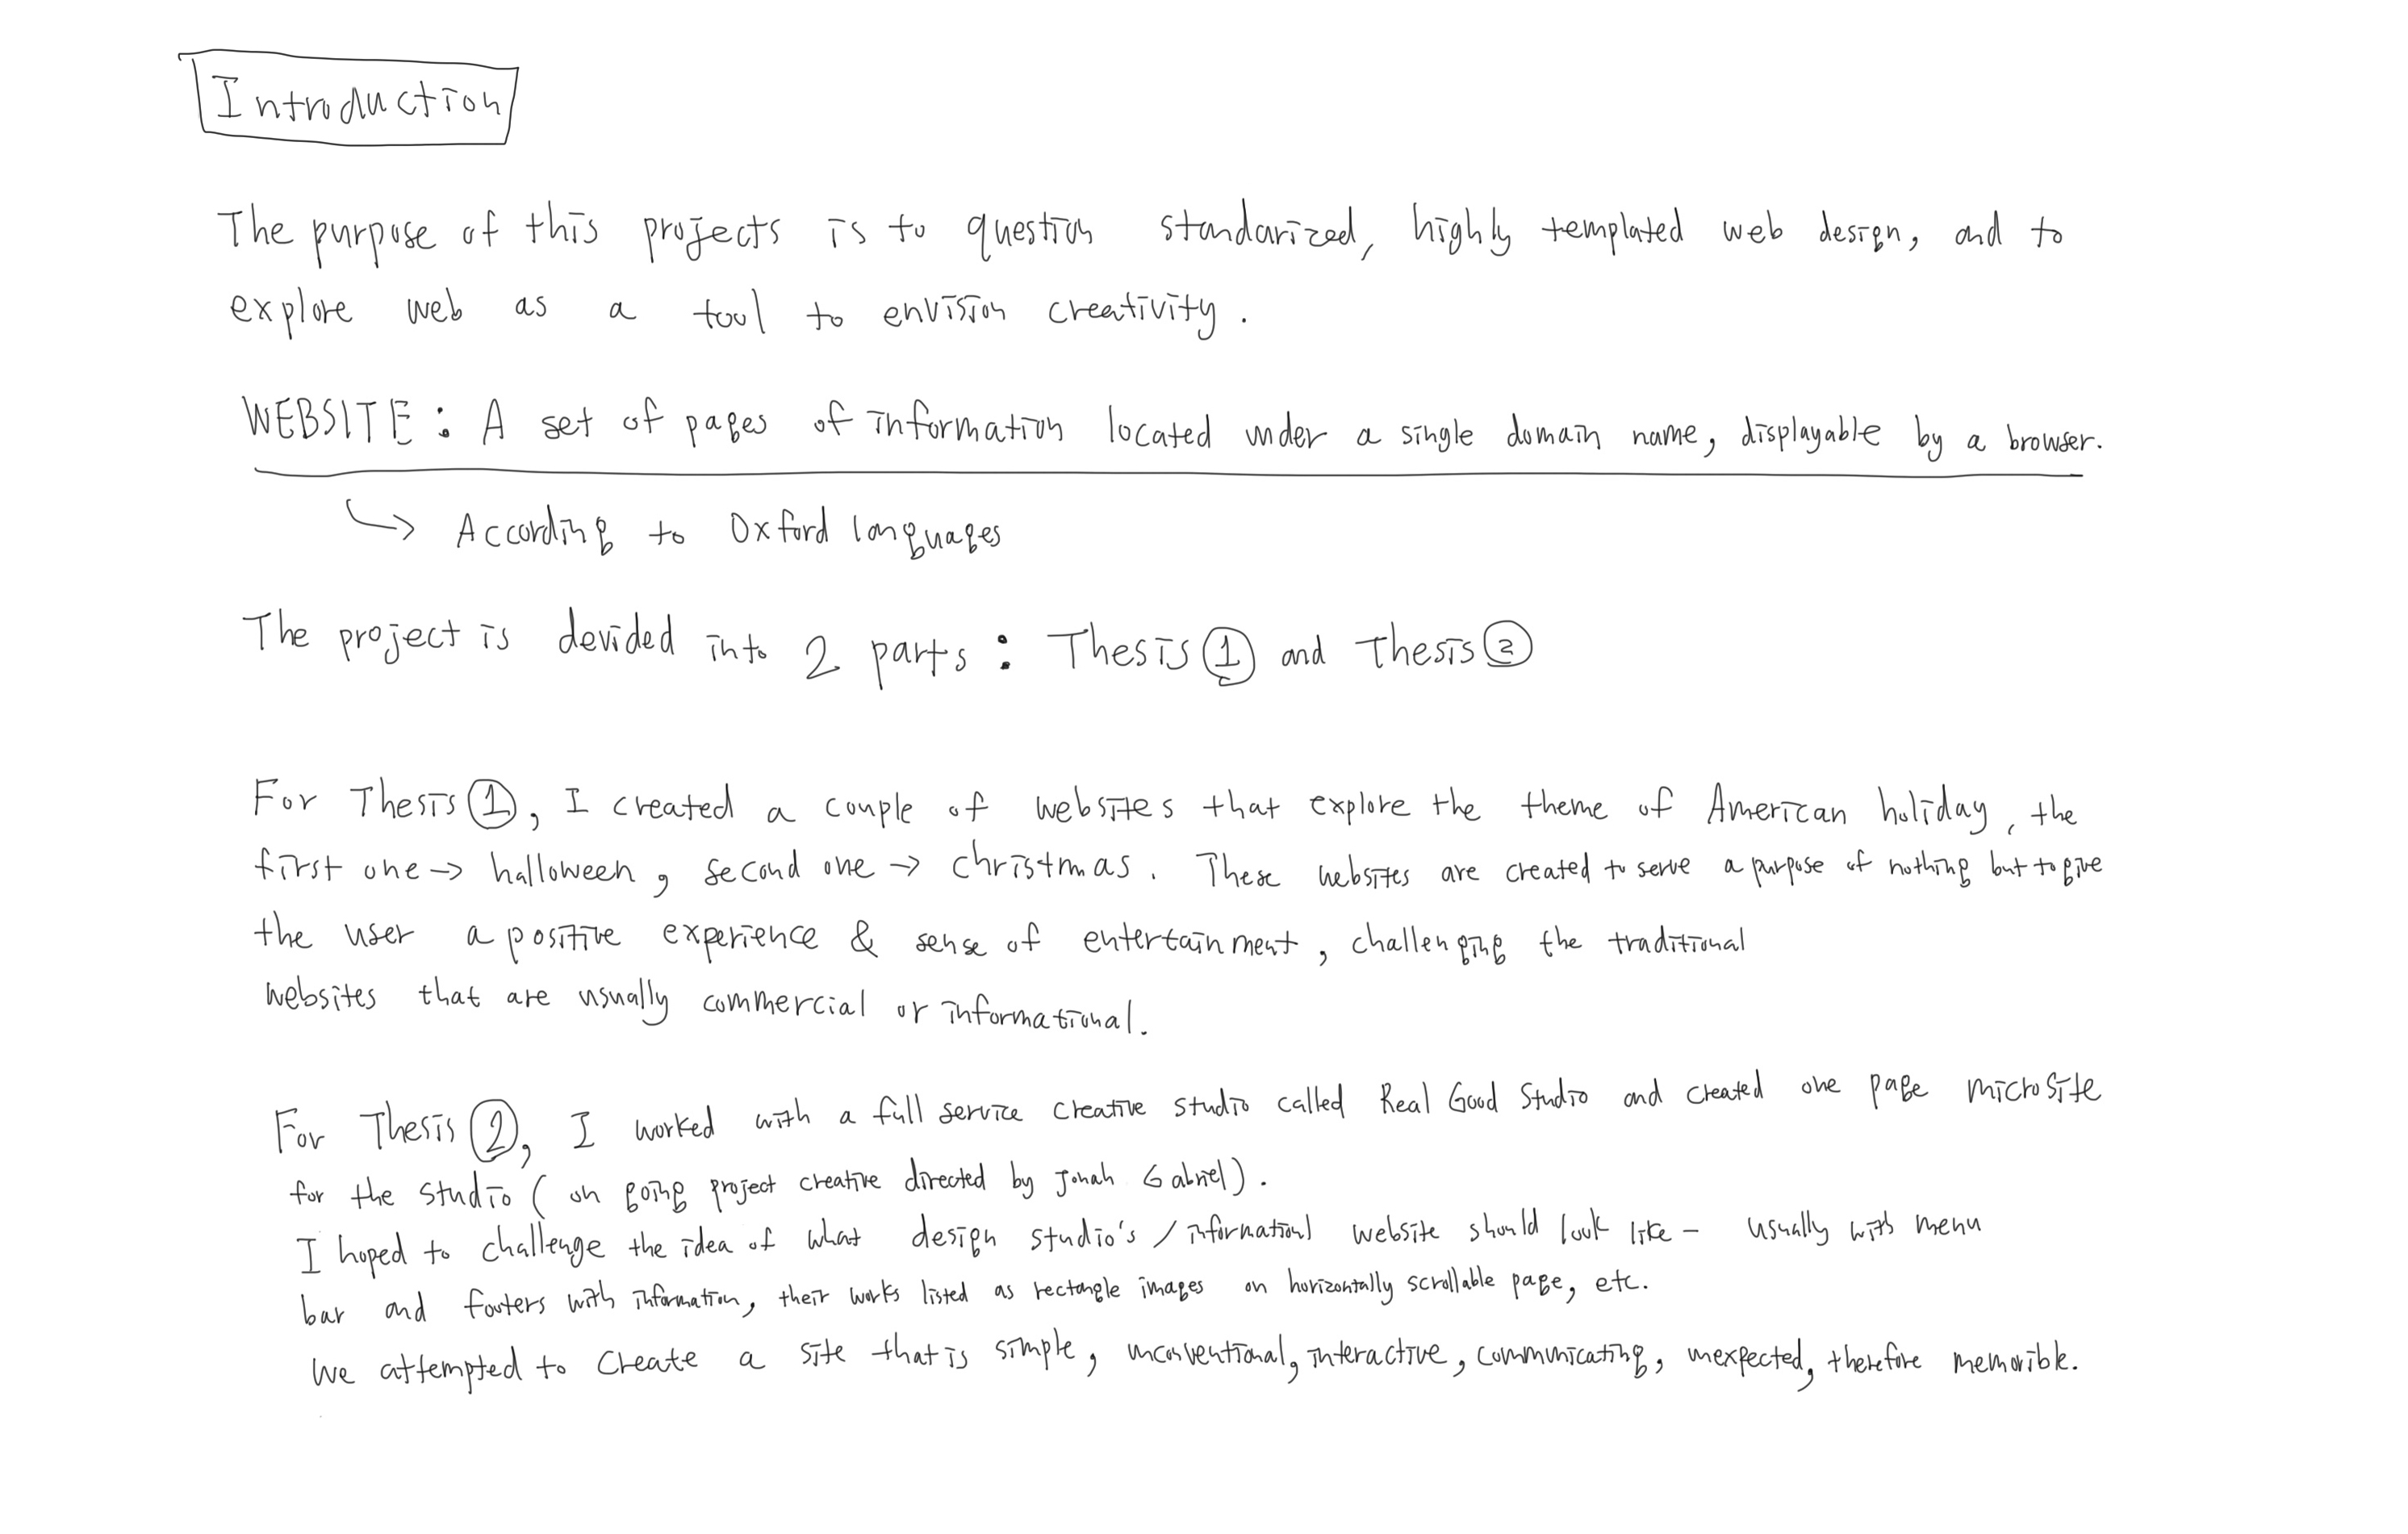 Introduction
The purpose of this projects is to question standarized, highly templated web design, and to
explore web as a tool to envision creativity.
WEBSITE: A set of pages of information located under a single domain name, displayable by a browser.
↳ According to Oxford languages
The project is devided into 2 parts: Thesis ① and Thesis ②
For Thesis ①, I created a couple of websites that explore the theme of American holiday, the
first one → halloween, second one → christmas. These websites are created to serve a purpose of nothing but to give
the user a positive experience & sense of entertainment, challenging the traditional
websites that are usually commercial or informational.
For Thesis ②, I worked with a full service creative studio called Real Good Studio and created one page microsite
for the studio (on going project creative directed by Jonah Gabriel).
I hoped to challenge the idea of what design studio's / information) website should look like – usually with menu
bar and footers with information, their works listed as rectangle images on horizontally scrollable page, etc.
We attempted to create a site that is simple, unconventional, interactive, communicating, unexpected, therefore memorible.